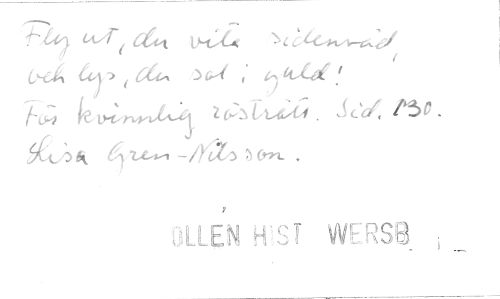 Fly ut, du vita sidenväd,
och lys, du sol i guld!
För kvinnlig rösträtt. Sid. 130.
Lisa Gren-Nilsson.
OLLEN HIST WERSB